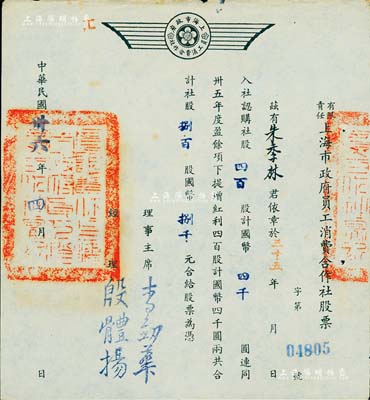 上海市政府
員工消費合作社
有限
責任
上海市政府員工消費合作社股票
字第 號
04805
茲有朱季林君依章於三十五年 月 日
入社認購社股四百股計國幣四千圓連同
卅五年度盈餘項下提增紅利四百股計國幣四千圓兩共合
計社股捌百股國幣捌千元合給股票為憑
理事主席
經理
殷體揚
中華民國卅六年四月 日